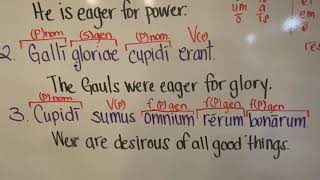 He is eager for power.
um a
(P)nom (s)gen (P)nom V(P)
2. Gallī gloriae cupidī erant.
The Gauls were eager for glory.
(P)nom V(P) f(P)gen f(P)gen f(P)gen
3. Cupidī sumus omnium rērum bonārum.
We are desirous of all good things.